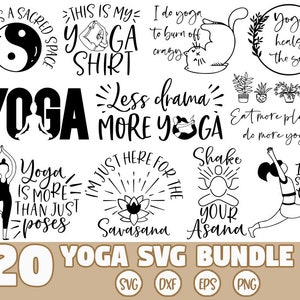 A SACRED SPACE
THIS IS MY
YOGA
SHIRT
I do yoga
to burn off
crazy
Yog
heals
the s
YOGA
Less drama
MORE YOGA
Eat more pla
do more yog
Yoga
IS MORE
THAN JUST
poses
I'M JUST HERE FOR THE
Savasana
Shake
YOUR
Asana
I
20 YOGA SVG BUNDLE
SVG
DXF
EPS
PNG